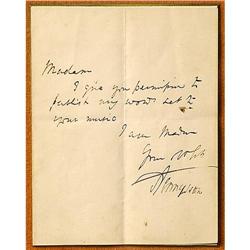 Madam
I give you permission to
publish my words set to
your music
I am Madam
Your obt
ATennyson